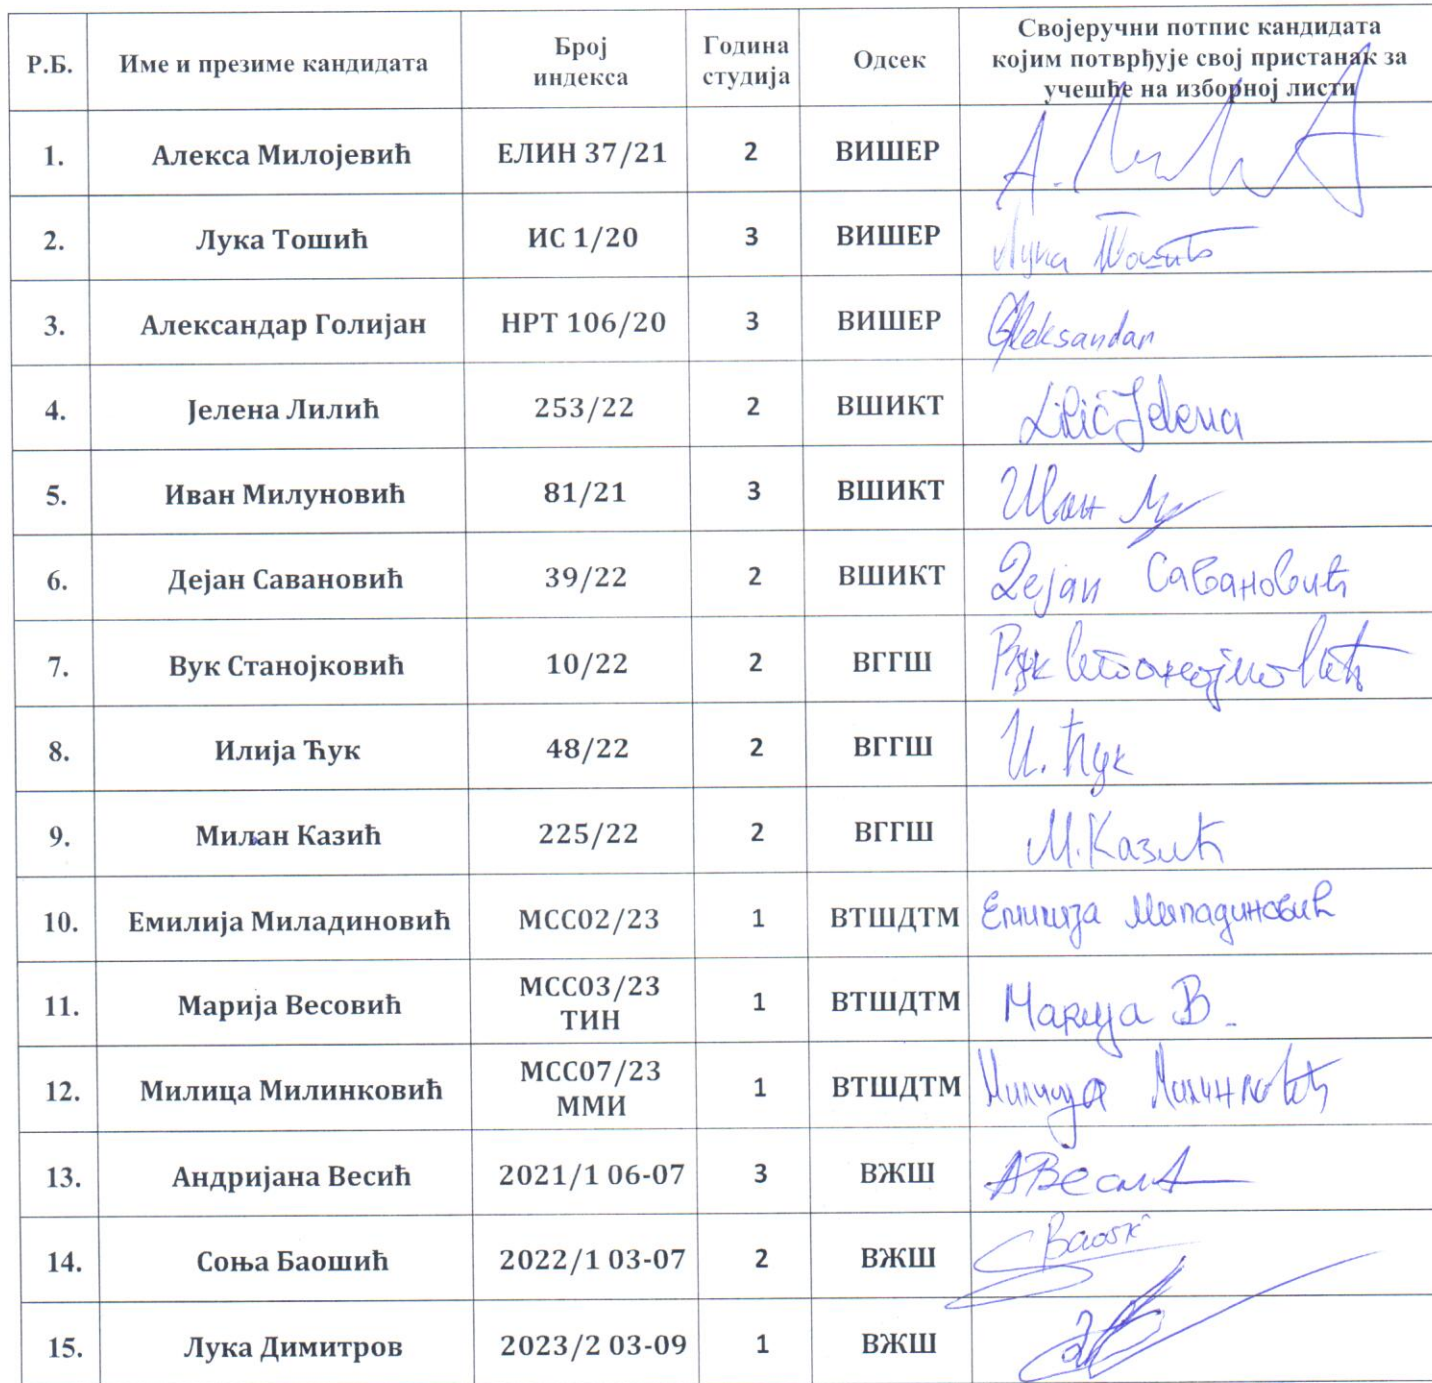 Р.Б. Име и презиме кандидата Број индекса Година студија Одсек Својеручни потпис кандидата којим потврђује свој пристанак за учешће на изборној листи
1. Алекса Милојевић ЕЛИН 37/21 2 ВИШЕР А.
2. Лука Тошић ИС 1/20 3 ВИШЕР Лука Тошић
3. Александар Голијан НРТ 106/20 3 ВИШЕР Aleksandar
4. Јелена Лилић 253/22 2 ВШИКТ Lilić Jelena
5. Иван Милуновић 81/21 3 ВШИКТ Иван
6. Дејан Савановић 39/22 2 ВШИКТ Дејан Савановић
7. Вук Станојковић 10/22 2 ВГГШ Вук Станојковић
8. Илија Ћук 48/22 2 ВГГШ И. Ћук
9. Милан Казић 225/22 2 ВГГШ М. Казић
10. Емилија Миладиновић МСС02/23 1 ВТШДТМ Емилија Миладиновић
11. Марија Весовић МСС03/23 ТИН 1 ВТШДТМ Марија В.
12. Милица Милинковић МСС07/23 ММИ 1 ВТШДТМ Милица
13. Андријана Весић 2021/1 06-07 3 ВЖШ АВесић
14. Соња Баошић 2022/1 03-07 2 ВЖШ
15. Лука Димитров 2023/2 03-09 1 ВЖШ